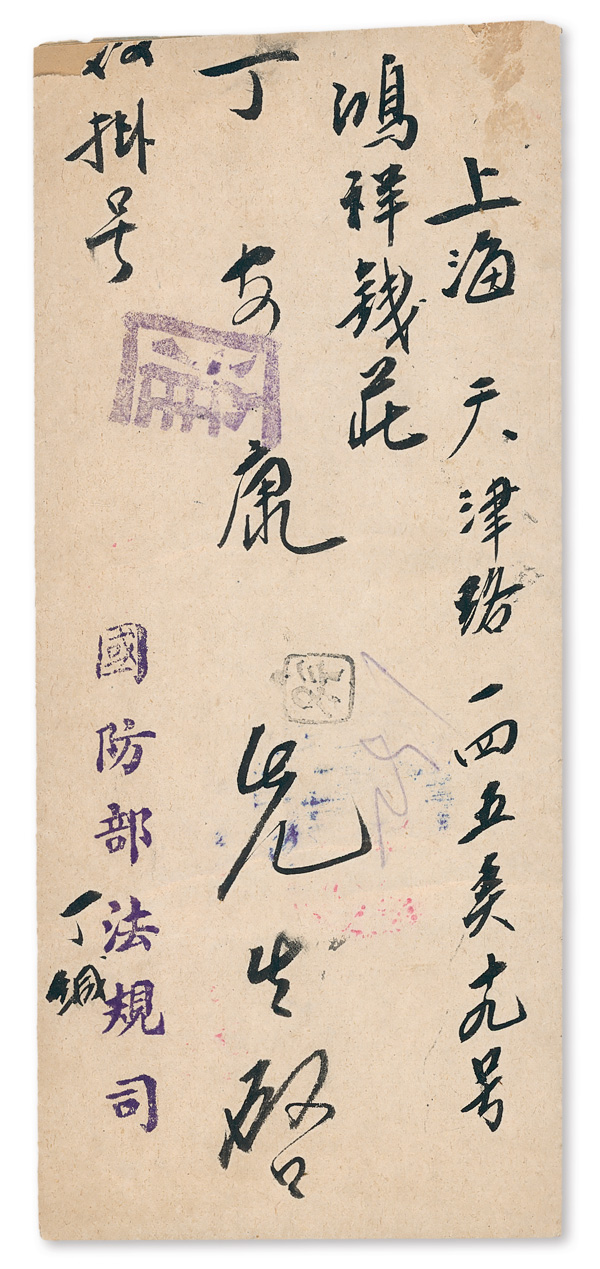 上海 天津路 一四五弄十九号
鴻祥錢莊
丁安康 先生啓
双掛号
國防部法規司
丁緘